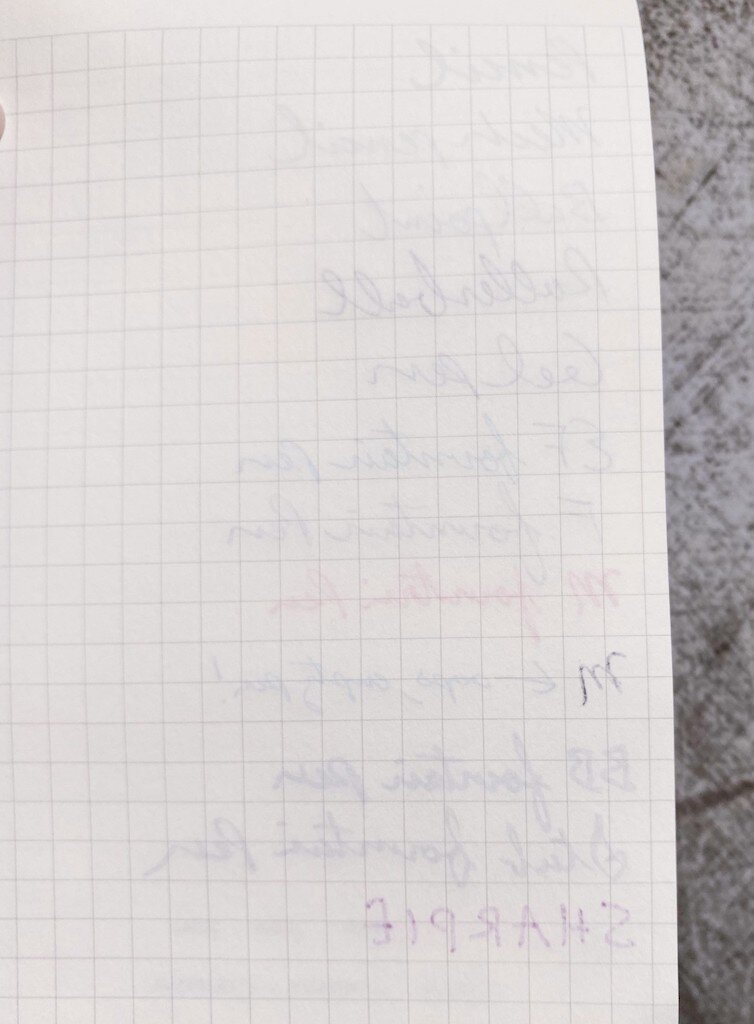 Pencil
Mech pencil
Ballpoint
Rollerball
Gel pen
EF fountain pen
F fountain Pen
M fountain Pen
M ← empty pen!
BB fountain pen
Stub fountain Pen
SHARPIE